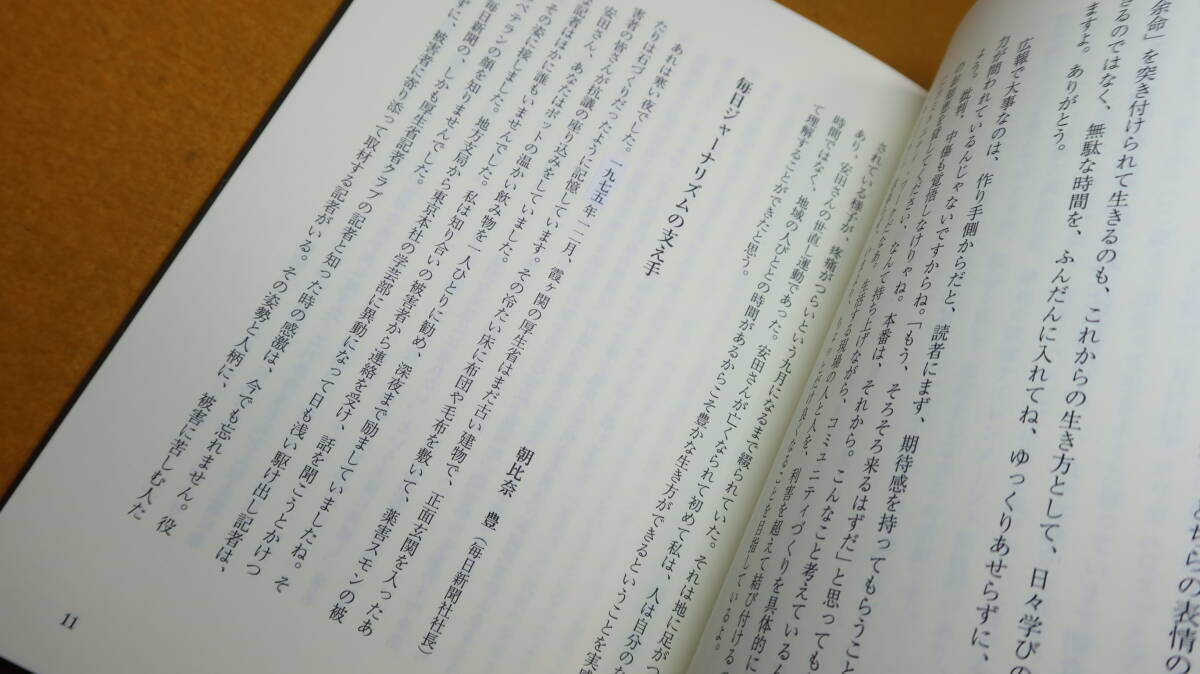 らの表情の
余命」を突き付けられて生きるのも、これからの生き方として、日々学びの
きるのではなく、無駄な時間を、ふんだんに入れてね、ゆっくりあせらずに、
ますよ。ありがとう。
広報で大事なのは、作り手側からだと、読者にまず、期待感を持ってもらうこと
力が問われているんじゃないですからね。「もう、そろそろ来るはずだ」と思っても
批判、中傷も覚悟しなけりゃね。本番は、それから。こんなこと考えているん
ください、なんて持ち上げながら、コミュニティづくりを具体的に
生活する現場の人と人を、利害を超えて結び付ける
良くなることを目指しているよ。
されている様子が、疼痛がつらいという九月になるまで綴られていた。それは地に足がつ
あり、安田さんの世直し運動であった。安田さんが亡くなられて初めて私は、人は自分のた
時間ではなく、地域の人びととの時間があるからこそ豊かな生き方ができるということを実感
て理解することができたと思う。
毎日ジャーナリズムの支え手
朝比奈 豊(毎日新聞社社長)
あれは寒い夜でした。一九七五年一二月、霞ヶ関の厚生省はまだ古い建物で、正面玄関を入ったあ
たりは石づくりだったように記憶しています。その冷たい床に布団や毛布を敷いて、薬害スモンの被
害者の皆さんが抗議の座り込みをしていました。
安田さん、あなたはポットの温かい飲み物を一人ひとりに勧め、深夜まで励ましていましたね。そ
の記者はほかに誰もいませんでした。私は知り合いの被害者から連絡を受け、話を聞こうとかけつ
その姿に接しました。地方支局から東京本社の学芸部に異動になって日も浅い駆け出し記者は、
ベテランの顔を知りませんでした。
毎日新聞の、しかも厚生省記者クラブの記者と知った時の感激は、今でも忘れません。役
ずに、被害者に寄り添って取材する記者がいる。その姿勢と人柄に、被害に苦しむ人た
11